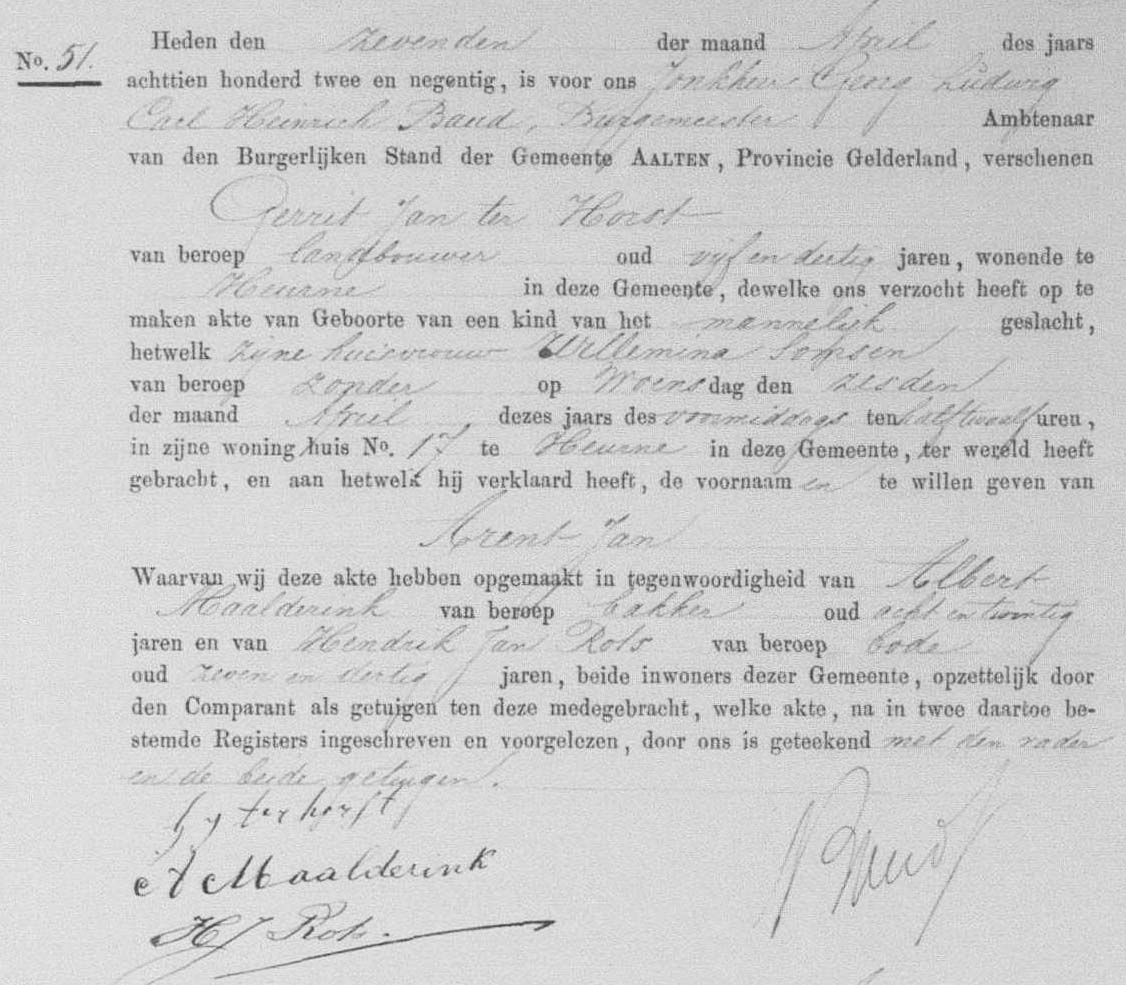 No. 51.
Heden den zevenden der maand April des jaars
achttien honderd twee en negentig, is voor ons Jonkheer Georg Ludwig
Carl Heinrich Baud, Burgemeester Ambtenaar
van den Burgerlijken Stand der Gemeente AALTEN, Provincie Gelderland, verschenen
Gerrit Jan ter Horst
van beroep landbouwer oud vijf en dertig jaren, wonende te
Heurne in deze Gemeente, dewelke ons verzocht heeft op te
maken akte van Geboorte van een kind van het mannelijk geslacht,
hetwelk zijne huisvrouw Willemina Somsen
van beroep zonder op Woensdag den zesden
der maand April dezes jaars des voormiddags ten half twaalf uren,
in zijne woning huis No. 17 te Heurne in deze Gemeente, ter wereld heeft
gebracht, en aan hetwelk hij verklaard heeft, de voornaamen te willen geven van
Arent Jan
Waarvan wij deze akte hebben opgemaakt in tegenwoordigheid van Albert
Maalderink van beroep bakker oud acht en twintig
jaren en van Hendrik Jan Rots van beroep bode
oud zeven en dertig jaren, beide inwoners dezer Gemeente, opzettelijk door
den Comparant als getuigen ten deze medegebracht, welke akte, na in twee daartoe be-
stemde Registers ingeschreven en voorgelezen, door ons is geteekend met den vader
en de beide getuigen.
g j ter horst
A Maalderink
Baud
HJ Rots.